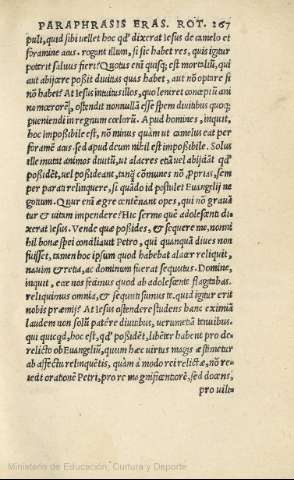 PARAPHRASIS ERAS. ROT. 167
puli, quid sibi vellet hoc qď dixerat iesus de camelo et
foramine acus. rogant illum, si sic habet res, quis igitur
poterit salvus fieri? Quotus enī quisq; est mortaliū, qui
aut abijcere possit divitias quas habet, aut nō optare si
nō habet? At iesus intuitus illos, quo leniret conceptū ani
no mœrorē, ostendit nonnullā esse spem divitibus quoq;
pueniendi in regnum cœlorū. Apud homines, inquit,
hoc impossibile est, nō minus quàm ut camelus eat per
foramē acus. sed apud deum nihil est impossibile. Solus
ille mutat animos divitū, ut alacres etiā vel abijciāt qď
possidēt, vel possideant, tanq̄ cōmunes nō pprias, sem
per parati relinquere, si quādo id postulet Evangelij ne
gotium. Quur enī ægre contemnant opes, qui nō grava
tur & vitam impendere? Hic sermo quē adolescenti di
xerat Iesus. Vende quæ possides, & sequere me, nonni
hil bonæ spei conciliavit Petro, qui quanquā dives non
fuisset, tamen hoc ipsum quod habebat alacer reliquit,
navim & retia, ac dominum fuerat sequutus. Domine,
inquit, ecce nos fecimus quod ab adolescente flagitabas.
reliquimus omnia, & sequuti sumus te. quid igitur erit
nobis præmij? At iesus ostendere studens hanc eximiā
laudem non solū patere divitibus, verumetiā tenuibus.
qui quicqď, hoc est, qď possidēt, libēter habent pro de
relicto ob Evangeliū, quum hæc virtus magis æstimetur
ab affectu relinquētis, quàm à modo rei relictæ, nō re-
iecit orationē Petri, pro re magnificentiorē, sed docens,
pro vili=
Ministerio de Educación, Cultura y Deporte